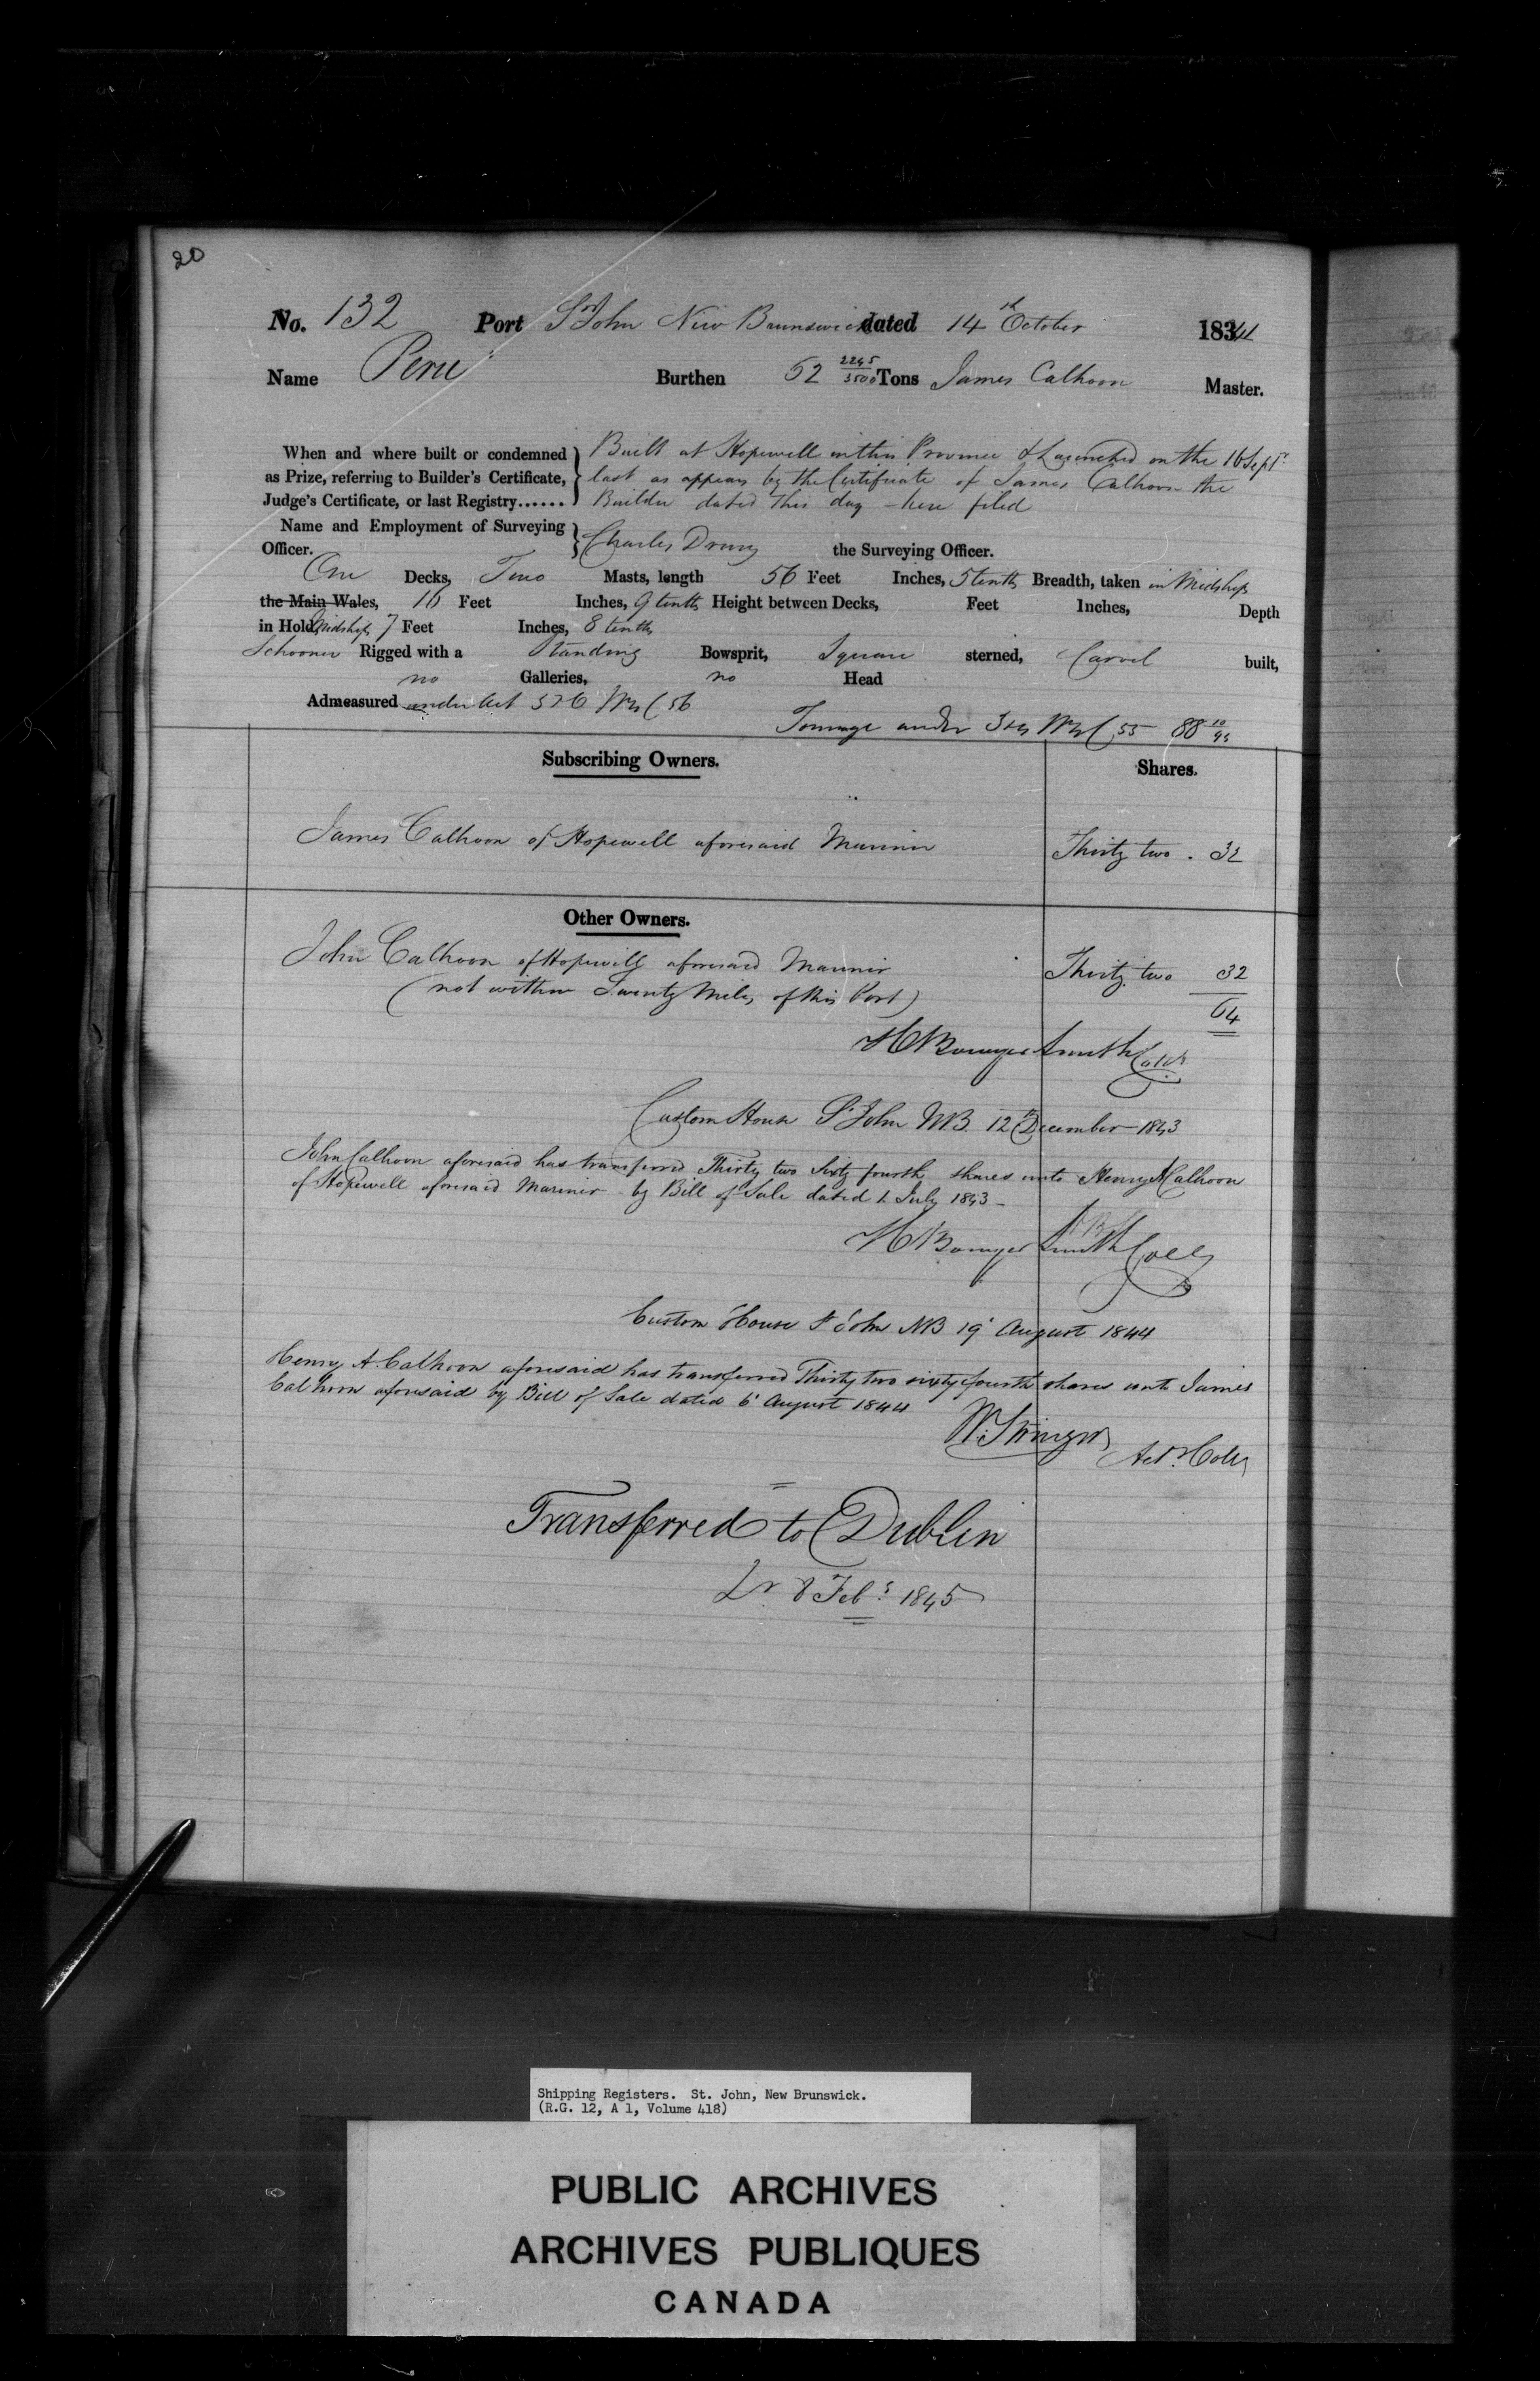 20
No. 132 Port St John New Brunswick dated 14th October 1841
Name Peru Burthen 62 2245/3500 Tons James Calhoon Master.
When and where built or condemned as Prize, referring to Builder's Certificate, Judge's Certificate, or last Registry......
Built at Hopewell in this Province & Launched on the 16 Septr
last as appears by the Certificate of James Calhoon the
Builder dated this day - here filed
Name and Employment of Surveying Officer. Charles Drury the Surveying Officer.
One Decks, Two Masts, length 56 Feet Inches, 5 tenths Breadth, taken in Midships
the Main Wales, 16 Feet Inches, 9 tenths Height between Decks, Feet Inches, Depth
in Hold Midships 7 Feet Inches, 8 tenths
Schooner Rigged with a Standing Bowsprit, Square sterned, Carvel built,
no Galleries, no Head
Admeasured under Act 5 & 6 Wm 4 C 56
Tonnage under 3 & 4 Wm 4 C 55 - 88 10/94
Subscribing Owners. Shares.
James Calhoon of Hopewell aforesaid Mariner Thirty two . 32
Other Owners.
John Calhoon of Hopewell aforesaid Mariner Thirty two 32
(not within Twenty Miles of this Port) 64
H Bowyer Smith Collr
Custom House St John NB. 12th December 1843
John Calhoon aforesaid has transferred Thirty two Sixty fourth shares unto Henry A Calhoon
of Hopewell aforesaid Mariner by Bill of Sale dated 1 July 1843 -
H Bowyer Smith Collr
Custom House St John NB 19 August 1844
Henry A. Calhoon aforesaid has transferred Thirty two sixty fourth shares unto James
Calhoon aforesaid by Bill of Sale dated 6 August 1844
Actg Collr
Transferred to Dublin
Lr 8 Feby 1845
Shipping Registers. St. John, New Brunswick.
(R.G. 12, A 1, Volume 418)
PUBLIC ARCHIVES
ARCHIVES PUBLIQUES
CANADA